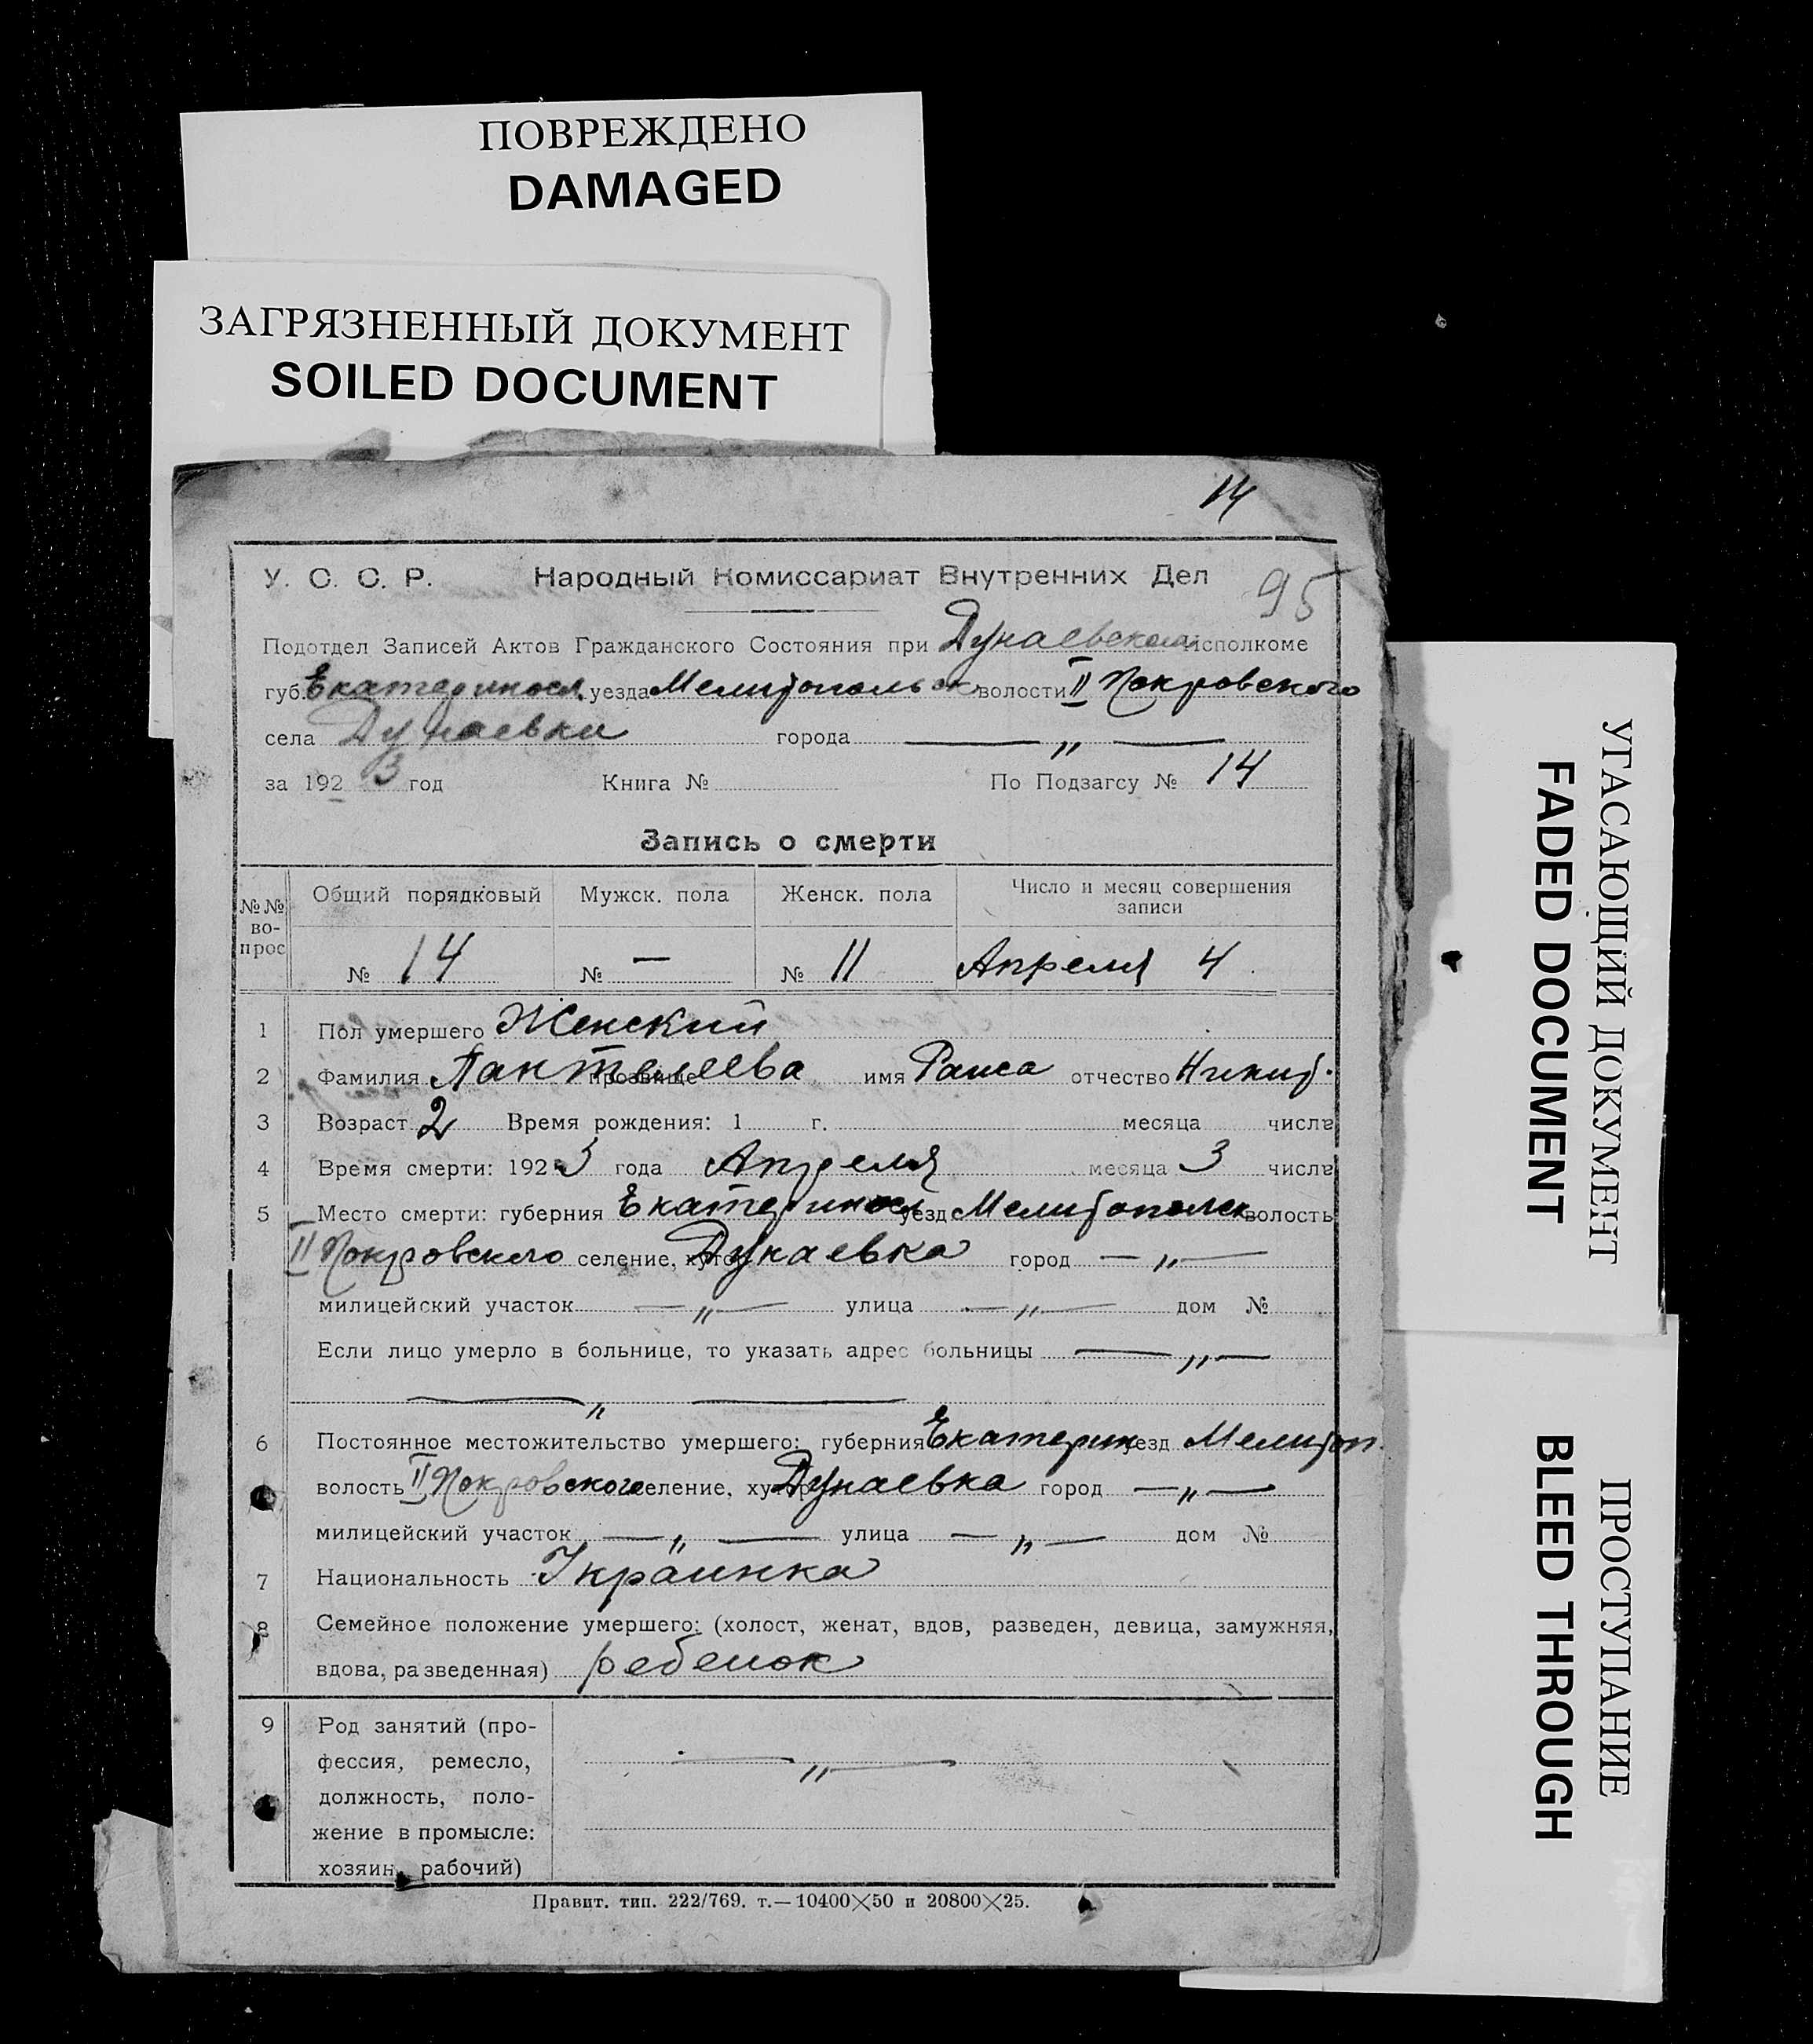 ПОВРЕЖДЕНО
DAMAGED
ЗАГРЯЗНЕННЫЙ ДОКУМЕНТ
SOILED DOCUMENT
14
У. С. С. Р. Народный Комиссариат Внутренних Дел 95
Подотдел Записей Актов Гражданского Состояния при Дунаевском исполкоме
губ. Екатериносл. уезда Мелитопольск волости II Покровского
села Дунаевки города — „ —
за 1923 год Книга № По Подзагсу № 14
Запись о смерти
№№ во-прос Общий порядковый Мужск. пола Женск. пола Число и месяц совершения записи
№ 14 № — № 11 Апреля 4
1 Пол умершего Женский
2 Фамилия Пантелеева прозвище имя Раиса отчество Никит.
3 Возраст 2 Время рождения: 1 г. месяца числа
4 Время смерти: 1923 года Апреля месяца 3 числа
5 Место смерти: губерния Екатериносл уезд Мелитопольск волость
II Покровского селение, хутор Дунаевка город — „ —
милицейский участок — „ — улица — „ — дом №
Если лицо умерло в больнице, то указать адрес больницы — „ —
— „ —
6 Постоянное местожительство умершего: губерния Екатерин уезд Мелитоп.
волость II Покровского селение, хутор Дунаевка город — „ —
милицейский участок — „ — улица — „ — дом №
7 Национальность Украинка
8 Семейное положение умершего: (холост, женат, вдов, разведен, девица, замужняя,
вдова, разведенная) ребенок
9 Род занятий (про-
фессия, ремесло, — „ —
должность, поло-
жение в промысле:
хозяин, рабочий)
Правит. тип. 222/769. т.—10400×50 и 20800×25.
УГАСАЮЩИЙ ДОКУМЕНТ
FADED DOCUMENT
ПРОСТУПАНИЕ
BLEED THROUGH